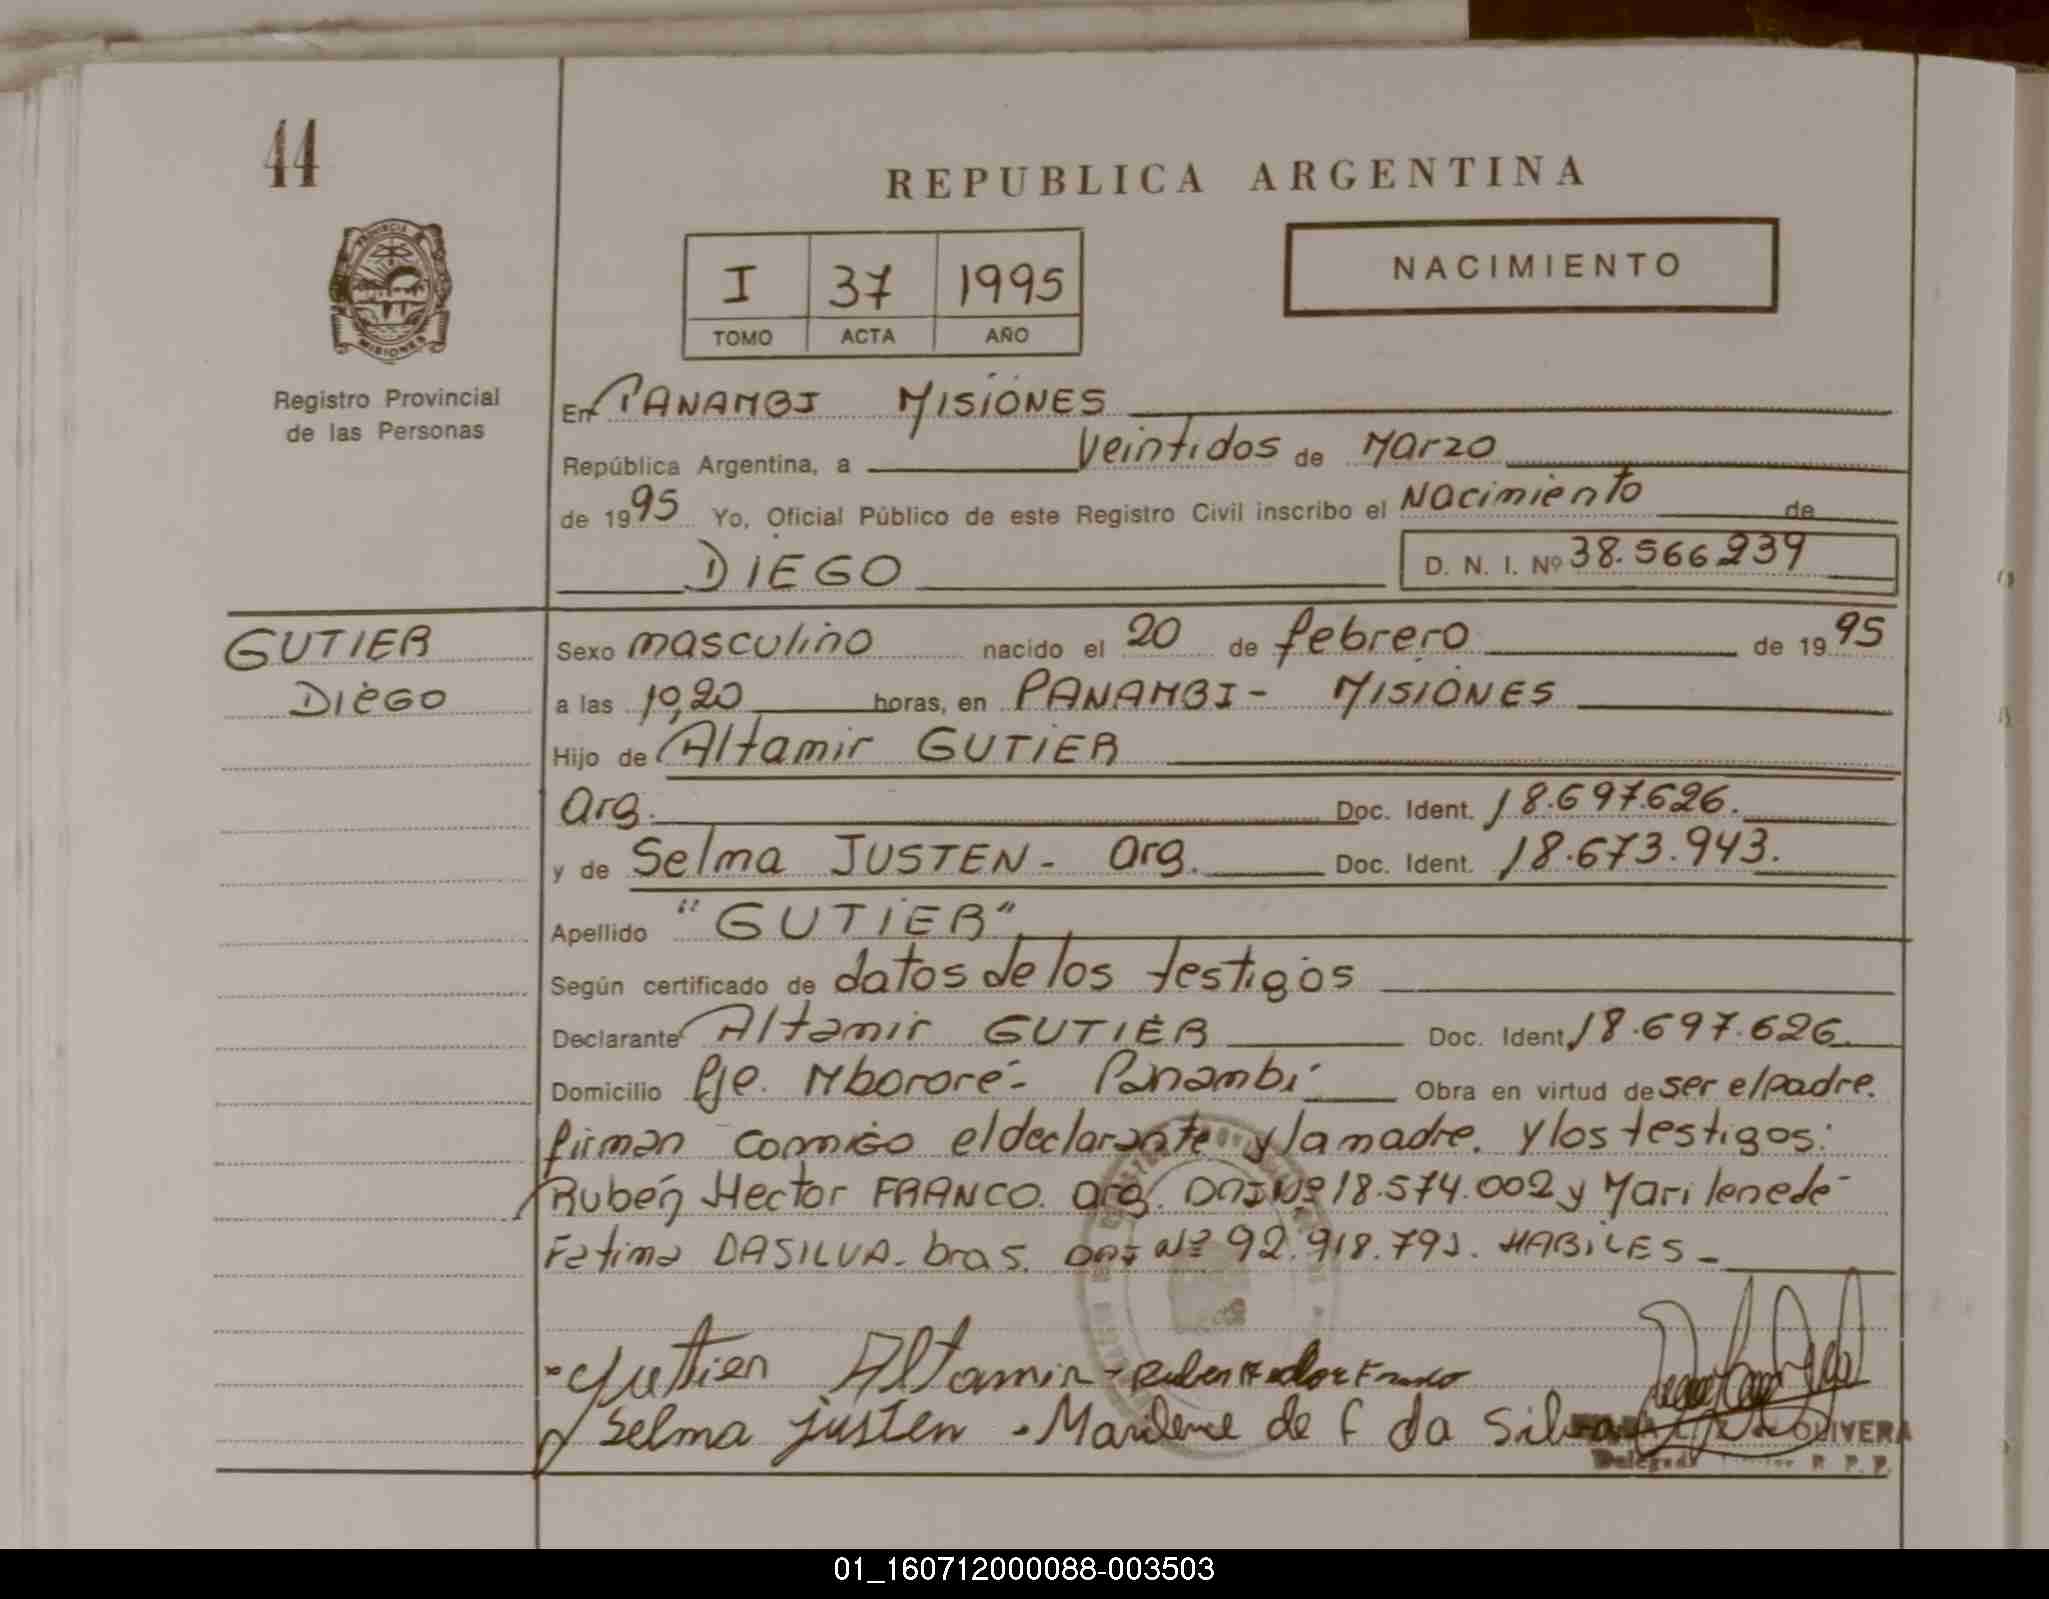 44
REPUBLICA ARGENTINA
PROVINCIA
MISIONES
I 37 1995
TOMO ACTA AÑO
NACIMIENTO
Registro Provincial
de las Personas
En PANAMBI MISIONES
República Argentina, a Veintidos de Marzo
de 1995 Yo, Oficial Público de este Registro Civil inscribo el Nacimiento de
DIEGO D. N. I. Nº 38.566.239
GUTIER
DIEGO
Sexo masculino nacido el 20 de febrero de 1995
a las 19,20 horas, en PANAMBI - MISIONES
Hijo de Altamir GUTIER
Arg. Doc. Ident. 18.697.626.
y de Selma JUSTEN - Arg. Doc. Ident. 18.673.943.
Apellido "GUTIER"
Según certificado de datos de los testigos
Declarante Altamir GUTIER Doc. Ident. 18.697.626
Domicilio Pje. Mbororé - Panambí Obra en virtud de ser el padre.
firman conmigo el declarante y la madre. y los testigos:
Rubén Hector FRANCO. arg. DNI Nº 18.574.002 y Marilene de
Fatima DASILVA - bras. DNI Nº 92.918.791. HABILES -
Gutier Altamir - Ruben Hector Franco
Selma justen . Marilene de f da Silva
OLIVERA
R. P. P.
01_160712000088-003503